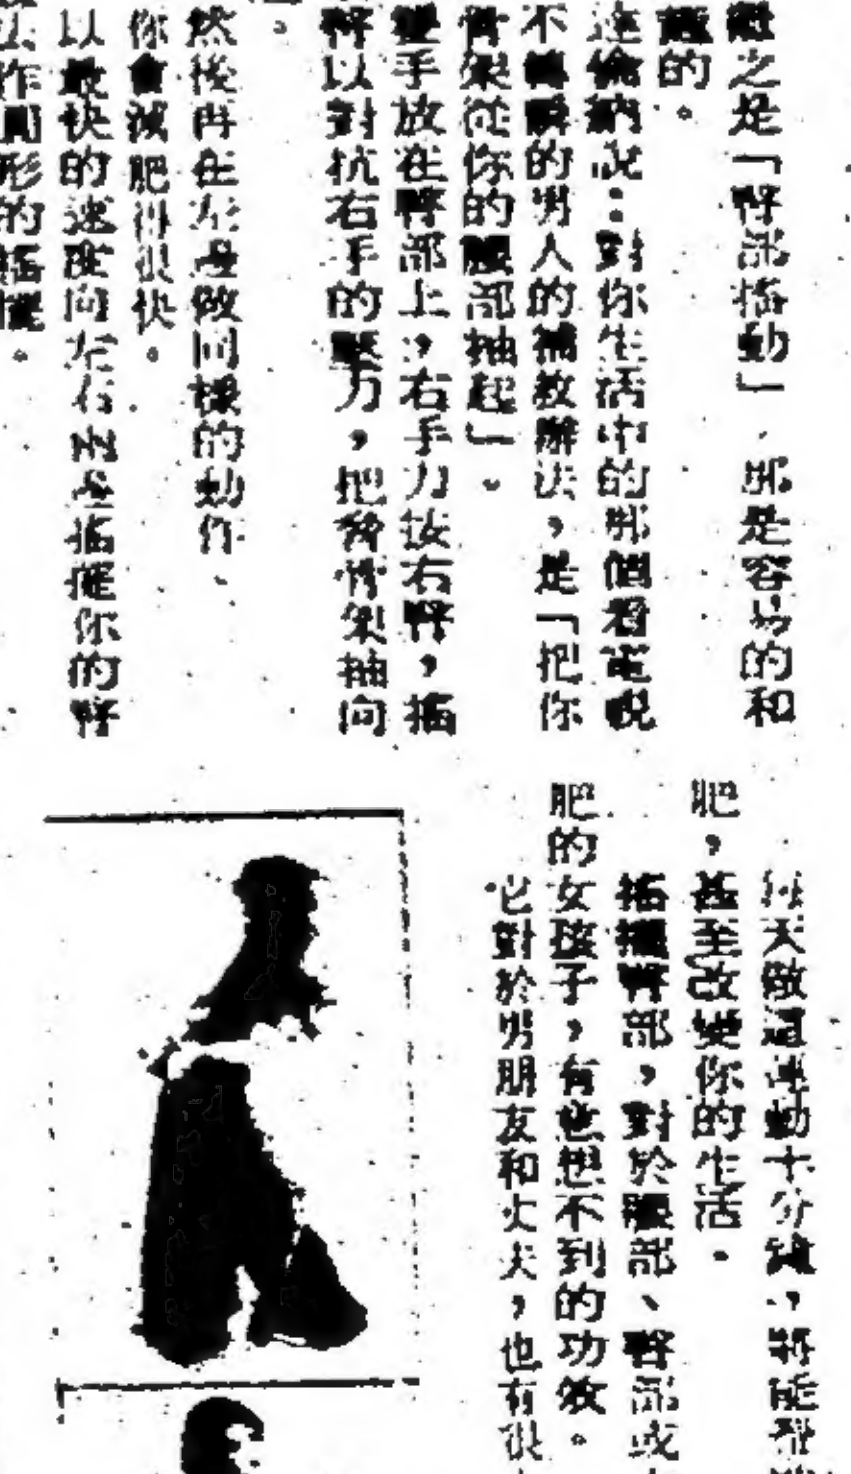 之是「臀部搖動」,那是容易的和
的。
達倫納說:對你生活中的那個看電視
不轉瞬的男人的補救辦法,是「把你
骨架從你的腰部抽起」。
雙手放在臀部上,右手力按右臀,搖
臀以對抗右手的壓力,把脊骨架抽向
然後再在左邊做同樣的動作、
你會減肥得很快。
以最快的速度向左右兩邊搖擺你的臀
作圓形的搖擺。
每天做這運動十分鐘,將能
肥,甚至改變你的生活。
搖擺臀部,對於腰部、臀部或
肥的女孩子,有意想不到的功效。
它對於男朋友和丈夫,也有很